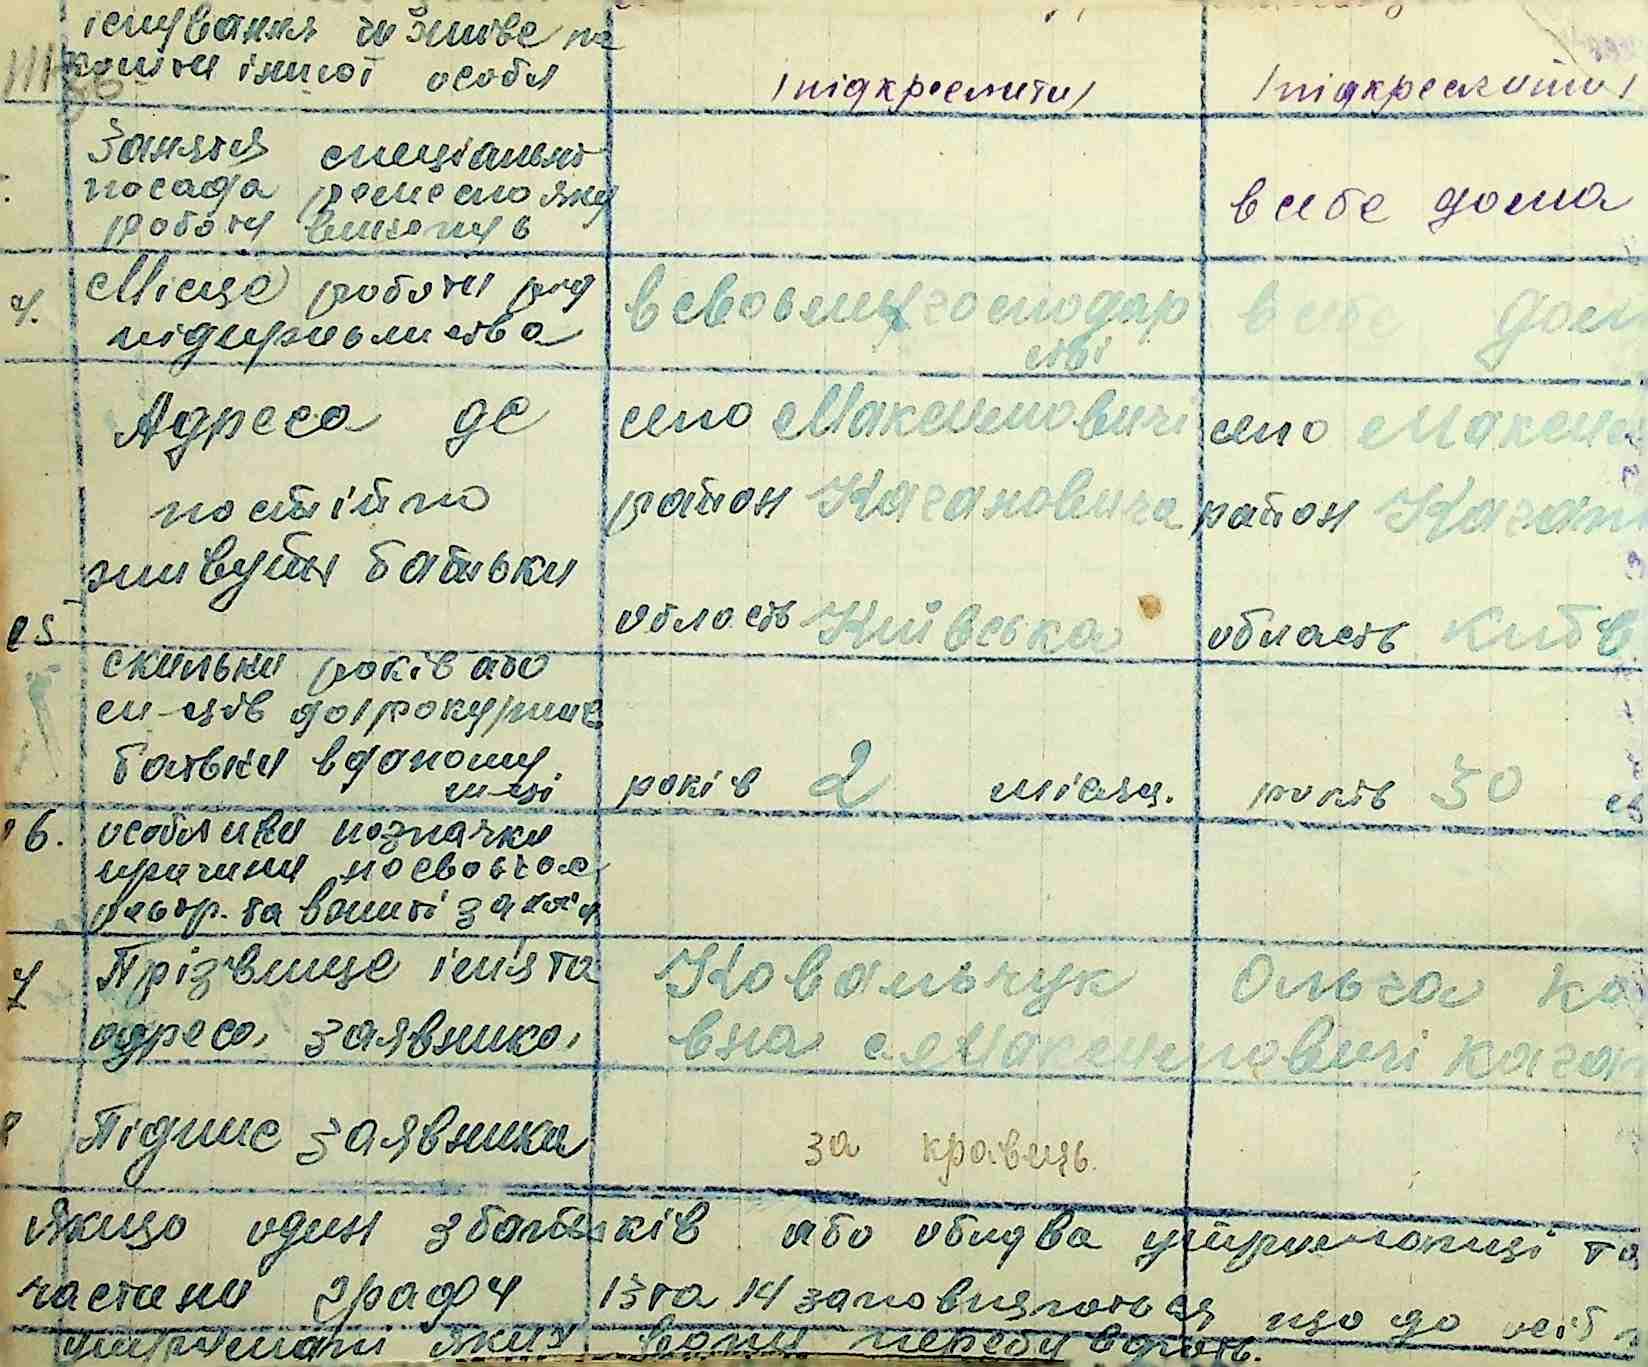 існування чи живе на
кошти іншої особи
/підкреслити/ /підкреслити/
Заняття спеціальні
посада ремесло яку
роботу виконув
в себе дома
4. Місце роботи
підприємства
в своєму господар
стві
в себе дом
Адреса де
постійно
живуть батьки
село Максимовичі
район Кагановича
область Київська
село Максим
район Каган
область Київ
15
скільки років або
м-ців до року
батьки в даному
м-ці
років 2 місяц. років 30
16. особливи позначки
причини
та
7 Прізвище ім'я та
адреса заявника.
Ковальчук Ольга
вна с Максимовичі Каган
Підпис заявника
за кравець
Якщо один з батьків або обидва утриманці та
частани граф 4 13 та 14 заповняються що до осіб
утриман яких вони перебувають.